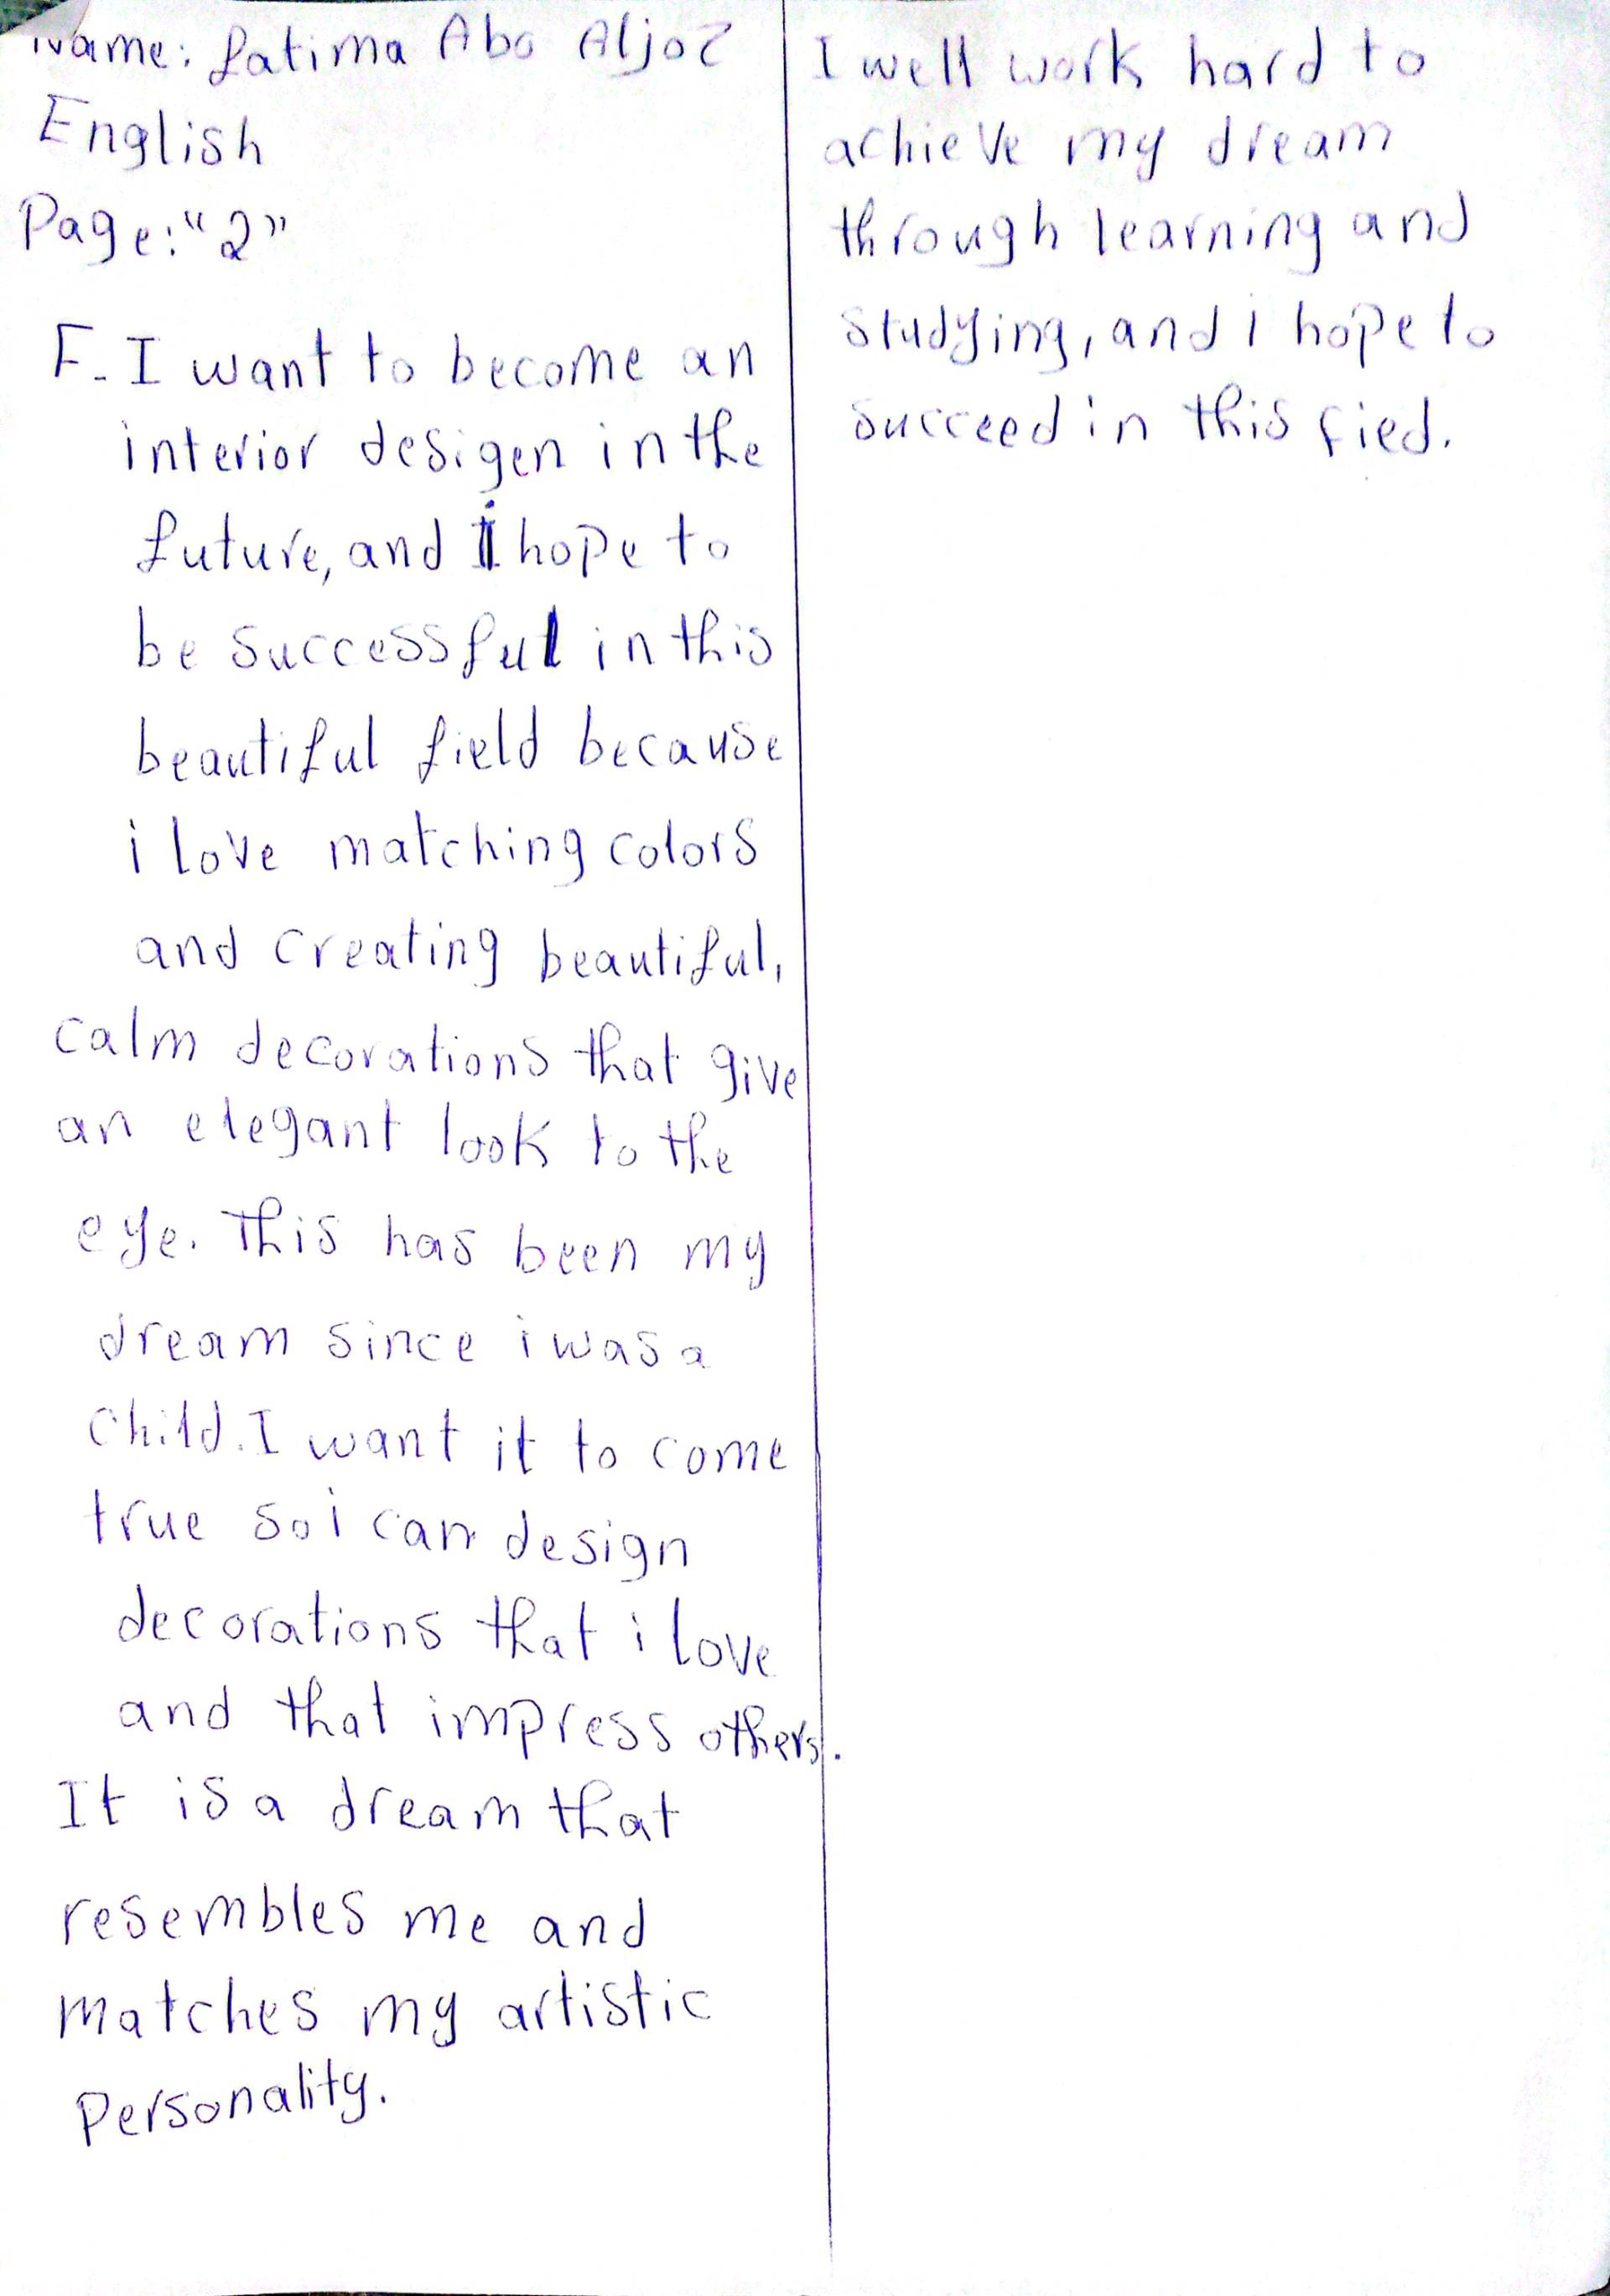 Name: fatima Abo Aljoz
English
Page: "2"
F. I want to become an
interior desigen in the
future, and I hope to
be successful in this
beautiful field because
i love matching colors
and creating beautiful,
calm decorations that give
an elegant look to the
eye. This has been my
dream since i was a
child. I want it to come
true so i can design
decorations that i love
and that impress others.
It is a dream that
resembles me and
matches my artistic
Personality.
I well work hard to
achieve my dream
through learning and
studying, and i hope to
succeed in this fied.